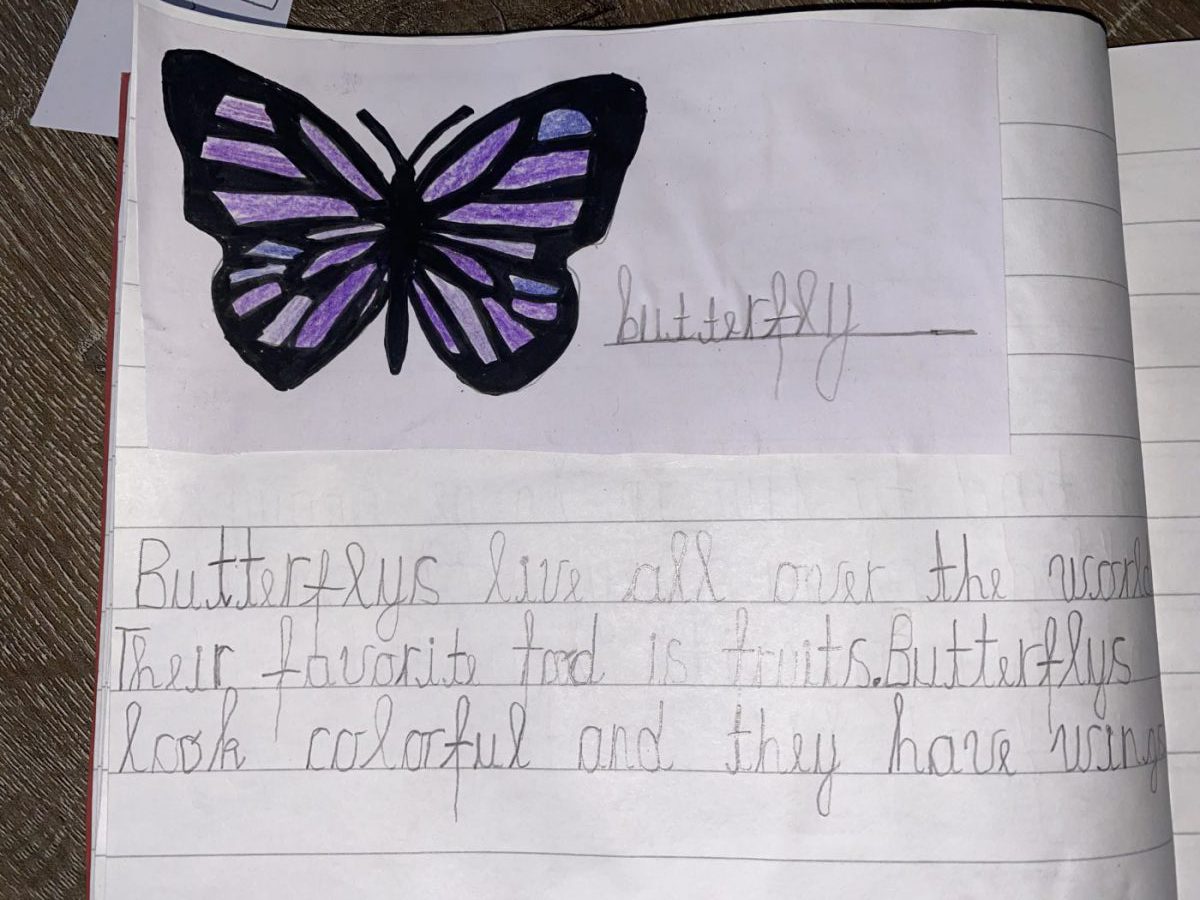 butterfly
Butterflys live all over the world
Their favorite food is fruits. Butterflys
look colorful and they have wings